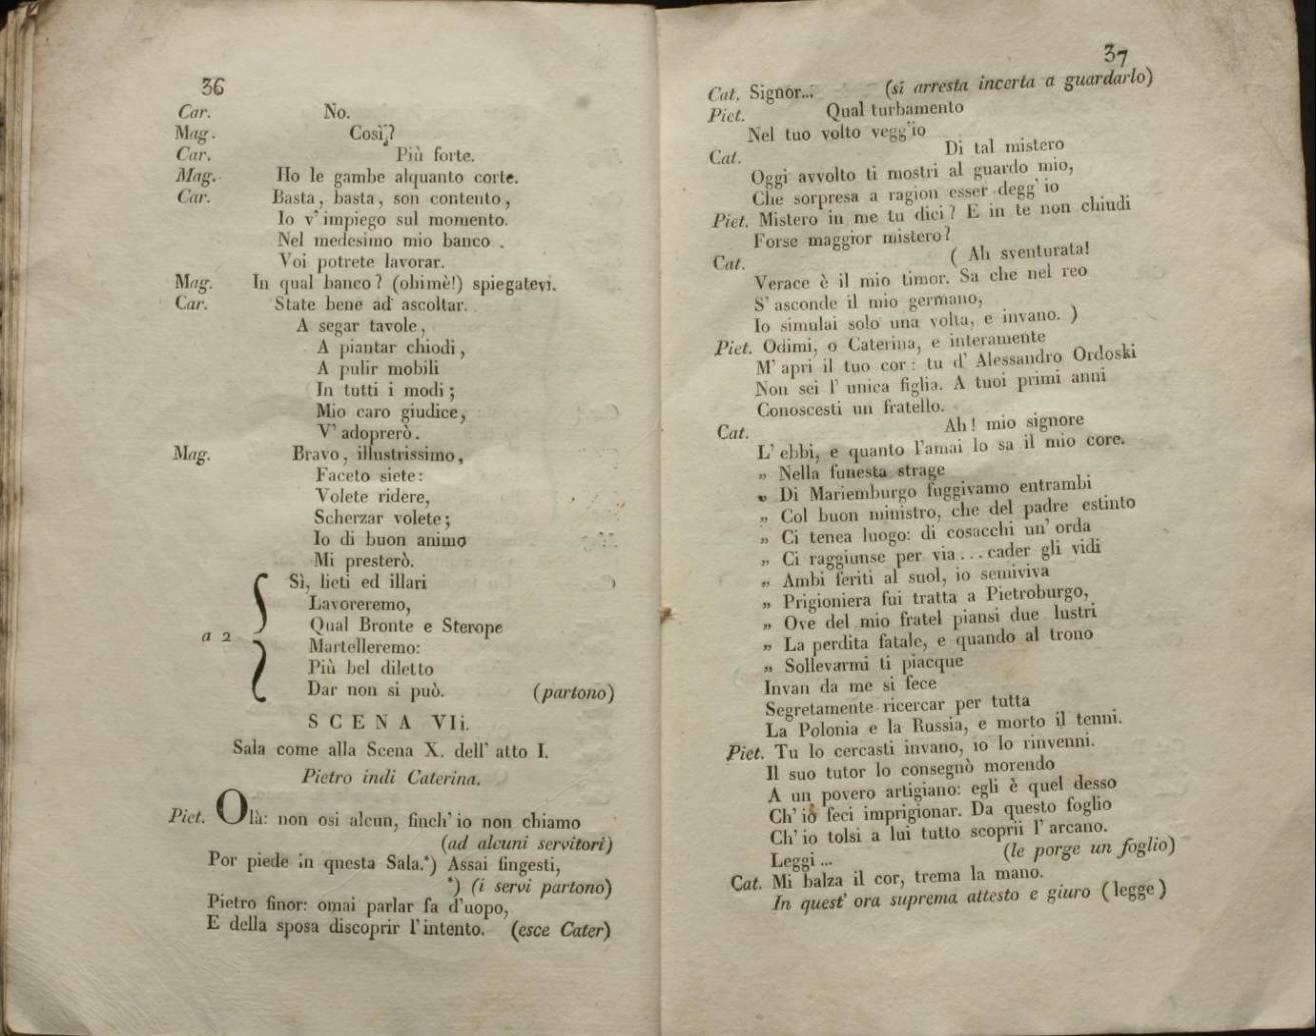 36
Car. No.
Mag. Così?
Car. Più forte.
Mag. Ho le gambe alquanto corte.
Car. Basta, basta, son contento,
Io v' impiego sul momento.
Nel medesimo mio banco .
Voi potrete lavorar.
Mag. In qual banco? (ohimè!) spiegatevi.
Car. State bene ad ascoltar.
A segar tavole,
A piantar chiodi,
A pulir mobili
In tutti i modi;
Mio caro giudice,
V' adoprerò.
Mag. Bravo, illustrissimo,
Faceto siete:
Volete ridere,
Scherzar volete;
Io di buon animo
Mi presterò.
a 2 Sì, lieti ed illari
Lavoreremo,
Qual Bronte e Sterope
Martelleremo:
Più bel diletto
Dar non si può. (partono)
SCENA VIi.
Sala come alla Scena X. dell' atto I.
Pietro indi Caterina.
Piet. Olà: non osi alcun, finch' io non chiamo
(ad alcuni servitori)
Por piede in questa Sala.*) Assai fingesti,
*) (i servi partono)
Pietro finor: omai parlar fa d'uopo,
E della sposa discoprir l'intento. (esce Cater)
37
Cat. Signor... (si arresta incerta a guardarlo)
Piet. Qual turbamento
Nel tuo volto vegg'io
Cat. Di tal mistero
Oggi avvolto ti mostri al guardo mio,
Che sorpresa a ragion esser degg' io
Piet. Mistero in me tu dici? E in te non chiudi
Forse maggior mistero?
Cat. ( Ah sventurata!
Verace è il mio timor. Sa che nel reo
S' asconde il mio germano,
Io simulai solo una volta, e invano. )
Piet. Odimi, o Caterina, e interamente
M' apri il tuo cor: tu d' Alessandro Ordoski
Non sei l' unica figlia. A tuoi primi anni
Conoscesti un fratello.
Cat. Ah! mio signore
L' ebbi, e quanto l'amai lo sa il mio core.
„ Nella funesta strage
„ Di Mariemburgo fuggivamo entrambi
„ Col buon ministro, che del padre estinto
„ Ci tenea luogo: di cosacchi un' orda
„ Ci raggiunse per via... cader gli vidi
„ Ambi feriti al suol, io semiviva
„ Prigioniera fui tratta a Pietroburgo,
„ Ove del mio fratel piansi due lustri
„ La perdita fatale, e quando al trono
„ Sollevarmi ti piacque
Invan da me si fece
Segretamente ricercar per tutta
La Polonia e la Russia, e morto il tenni.
Piet. Tu lo cercasti invano, io lo rinvenni.
Il suo tutor lo consegnò morendo
A un povero artigiano: egli è quel desso
Ch' io feci imprigionar. Da questo foglio
Ch' io tolsi a lui tutto scoprii l' arcano.
Leggi ... (le porge un foglio)
Cat. Mi balza il cor, trema la mano.
In quest' ora suprema attesto e giuro (legge)